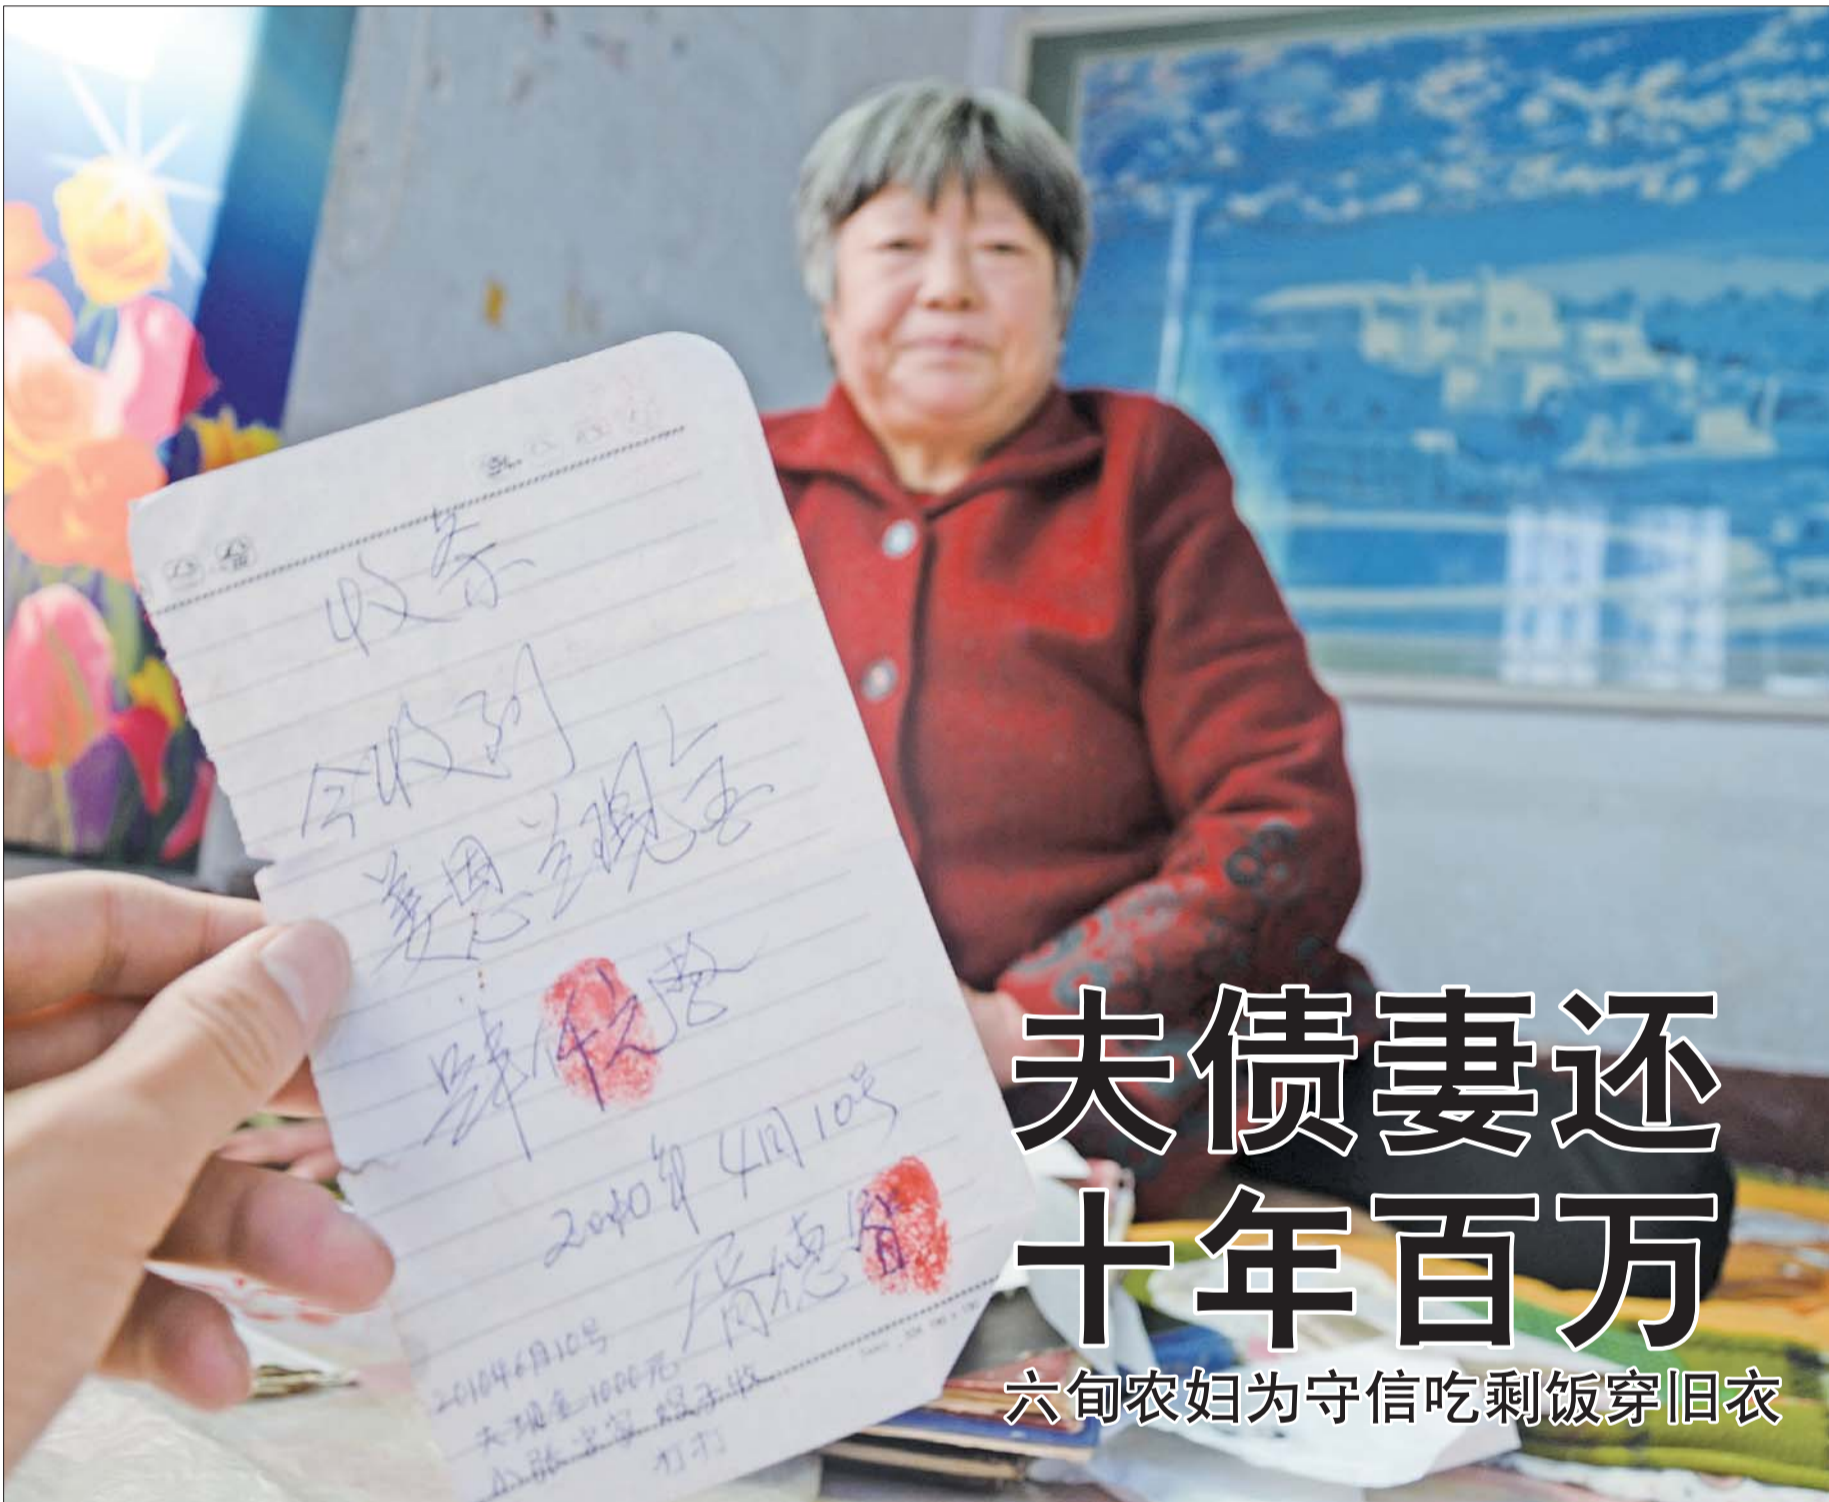 收条
今收到
姜恩兰现金
肆仟元整
2010年4月10号
胥德
2010年6月10号
夫债妻还
十年百万
六旬农妇为守信吃剩饭穿旧衣